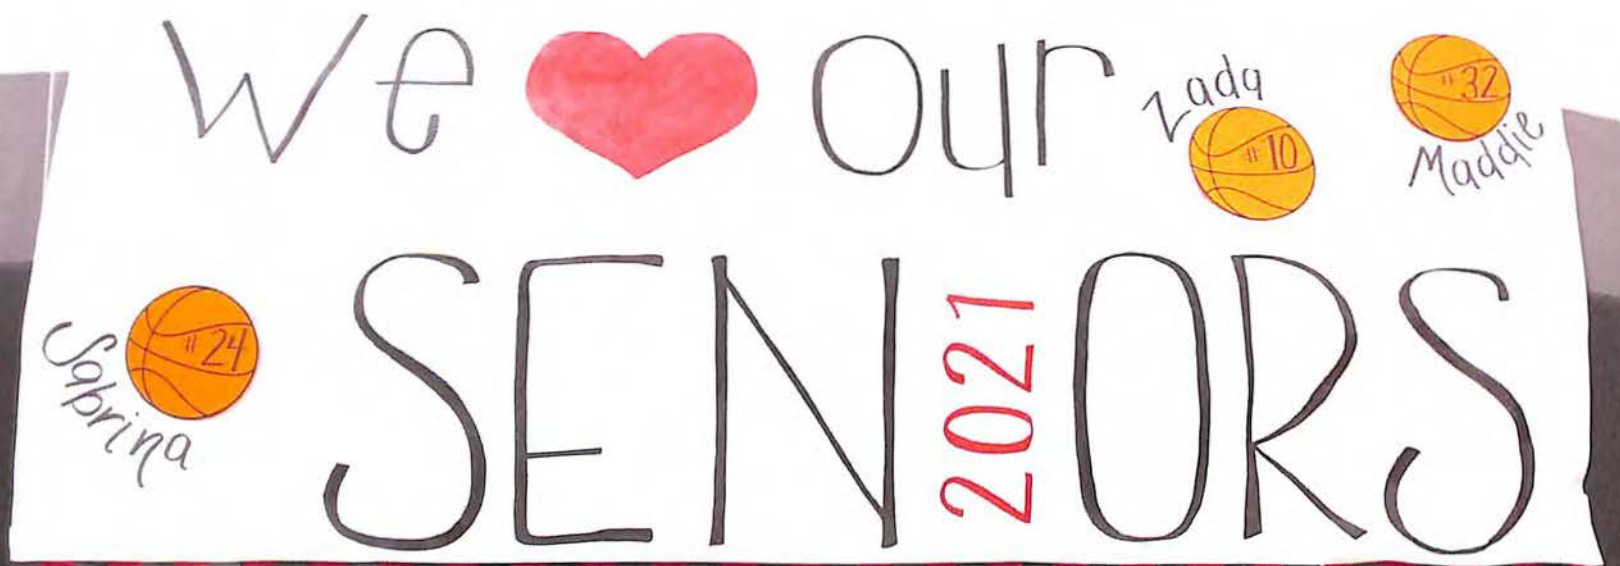 We ❤ our
Zada
#10
#32
Maddie
#24
Sabrina
SEN2021ORS